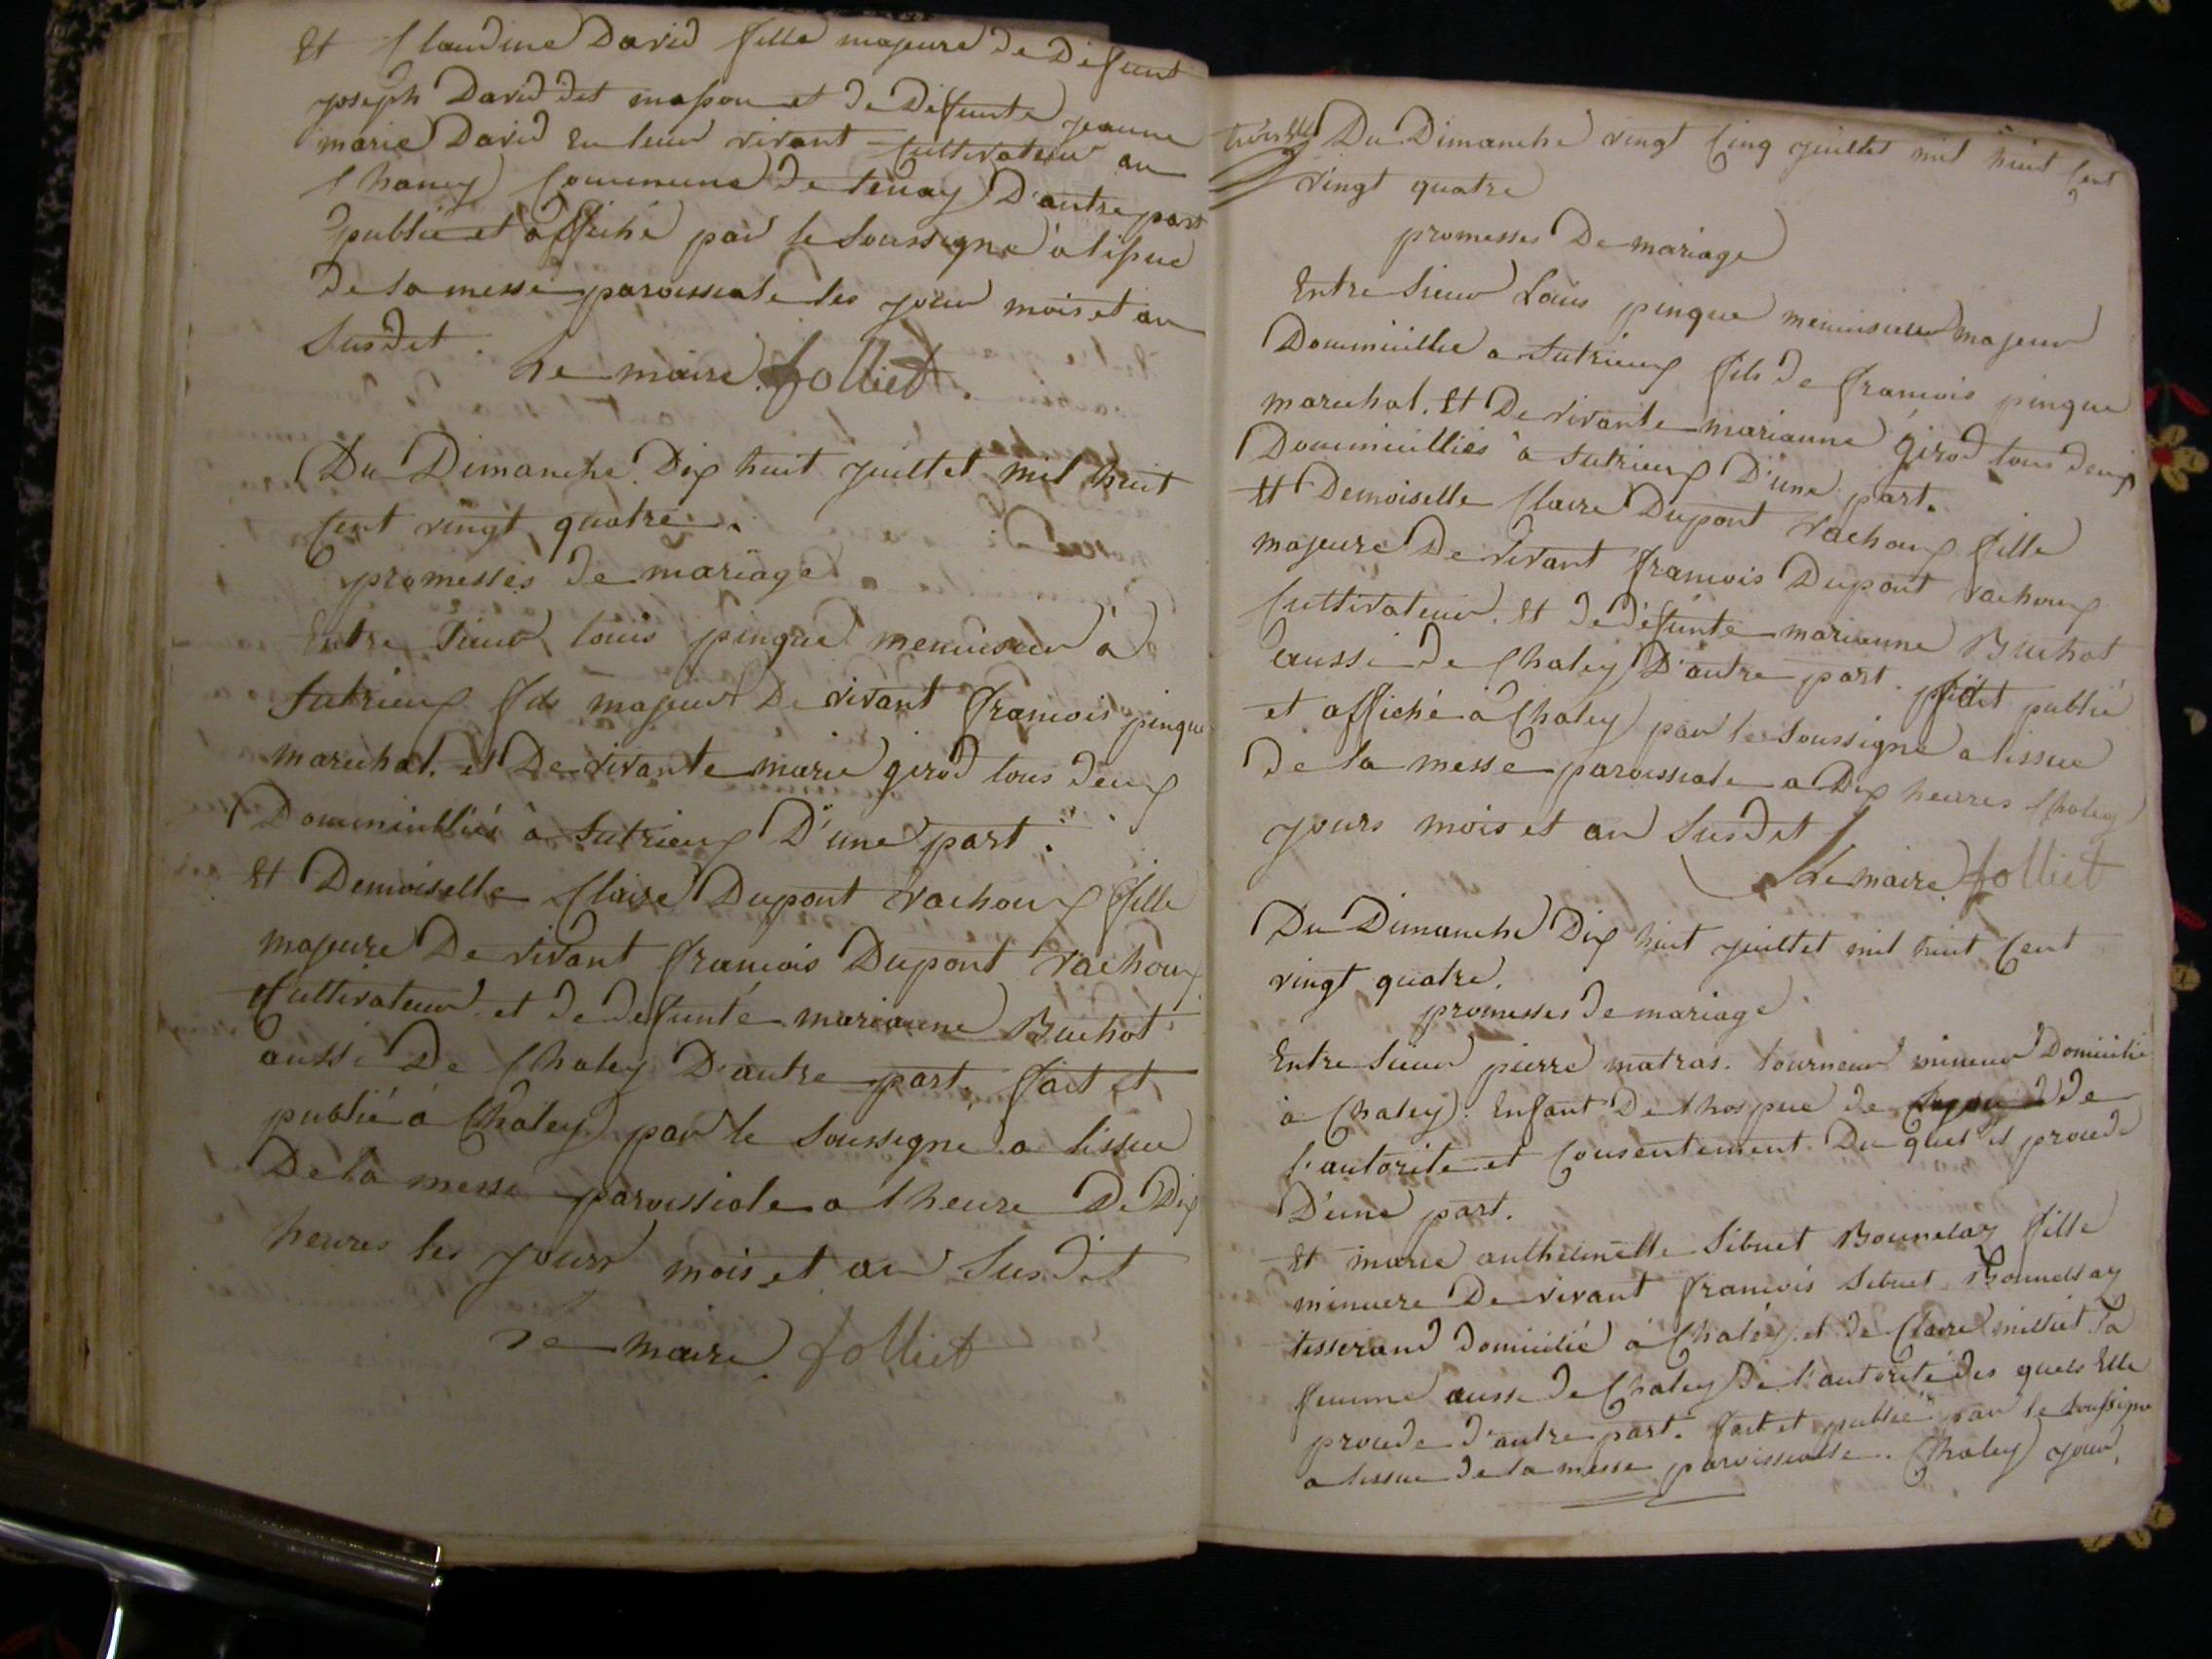 Et Claudine David fille majeure de Defunt
joseph David dit masson et de Defunte jeanne
marie David En leur vivant Cultivateur au
Chaney Commune de tenay D'autre part
publié et affiché par le Soussigné a lissue
de la messe paroissiale les jour mois et an
Susdit.
Le maire Jolliet.
Du Dimanche Dix huit juillet mil huit
Cent vingt quatre.
promesses de mariage
Entre Sieur louis pingue menuisier à
Sutrieux fils majeur De vivant francois pingue
marechal. et De vivante marie girod tous deux
Dommicilliés à Sutrieux D'une part.
Et Demoiselle Claire Dupont vachoux fille
majeure De vivant francois Dupont vachoux
Cultivateur. et de defunte marianne Buchot
aussi De Chaley D'autre part. fait et
publié à Chaley par le Soussigné a lissue
De la messe paroissiale a l heure De Dix
heures les jours mois et an Susdit
Le maire Jolliet
Du Dimanche vingt Cinq juillet mil huit Cent
vingt quatre
promesses De mariage
Entre Sieur Louis pingue menuisier majeur
Dommicillie a Sutrieux fils de francois pingue
marechal. Et De vivante marianne girod tous deux
Dommicilliés à Sutrieux D'une part.
Et Demoiselle Claire Dupont vachoux fille
majeure De vivant francois Dupont vachoux
Cultivateur. Et de défunte marianne Buchot
aussi de Chaley D'autre part. publié
et affiché à Chaley par le Soussigné a lissue
De la messe paroissiale a Dix heures Chaley
jours mois et an Susdit
Le maire Jolliet
Du Dimanche Dix huit juillet mil huit Cent
vingt quatre.
promesses de mariage
Entre Sieur pierre matras. tourneur mineur Domicilié
à Chaley. Enfant De lhospice de de
l'autorite et Consentement Du quel il procede
D'une part.
Et marie anthelmette Sibuet Bonnelay fille
mineure De vivant francois Sibuet Bonnelay
tisserand Domicilié à Chaley et de Claire milliet Sa
femme aussi de Chaley de l'autorité des quels Elle
procede d'autre part. fait et publié par le Soussigné
a lissue de la messe paroissialle. Chaley jour,